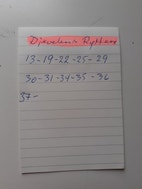 Djævelens Rytter
13-19-22-25-29
30-31-34-35-36
37-